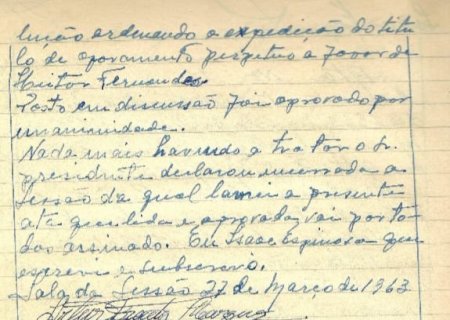 lução ordenando a expedição do titu
lo de aforamento perpetuo a favor de
Heitor Fernandes.
Posto em discussão foi aprovado por
unanimidade.
Nada mais havendo a tratar o Sr.
presidente declarou encerrada a
sessão da qual lavrei a presente
ata que lida e aprovada vai por to-
dos assinado. Eu Isaac Espinosa que
escrevi e subscrevo.
Sala da Sessão 27 de Março de 1963